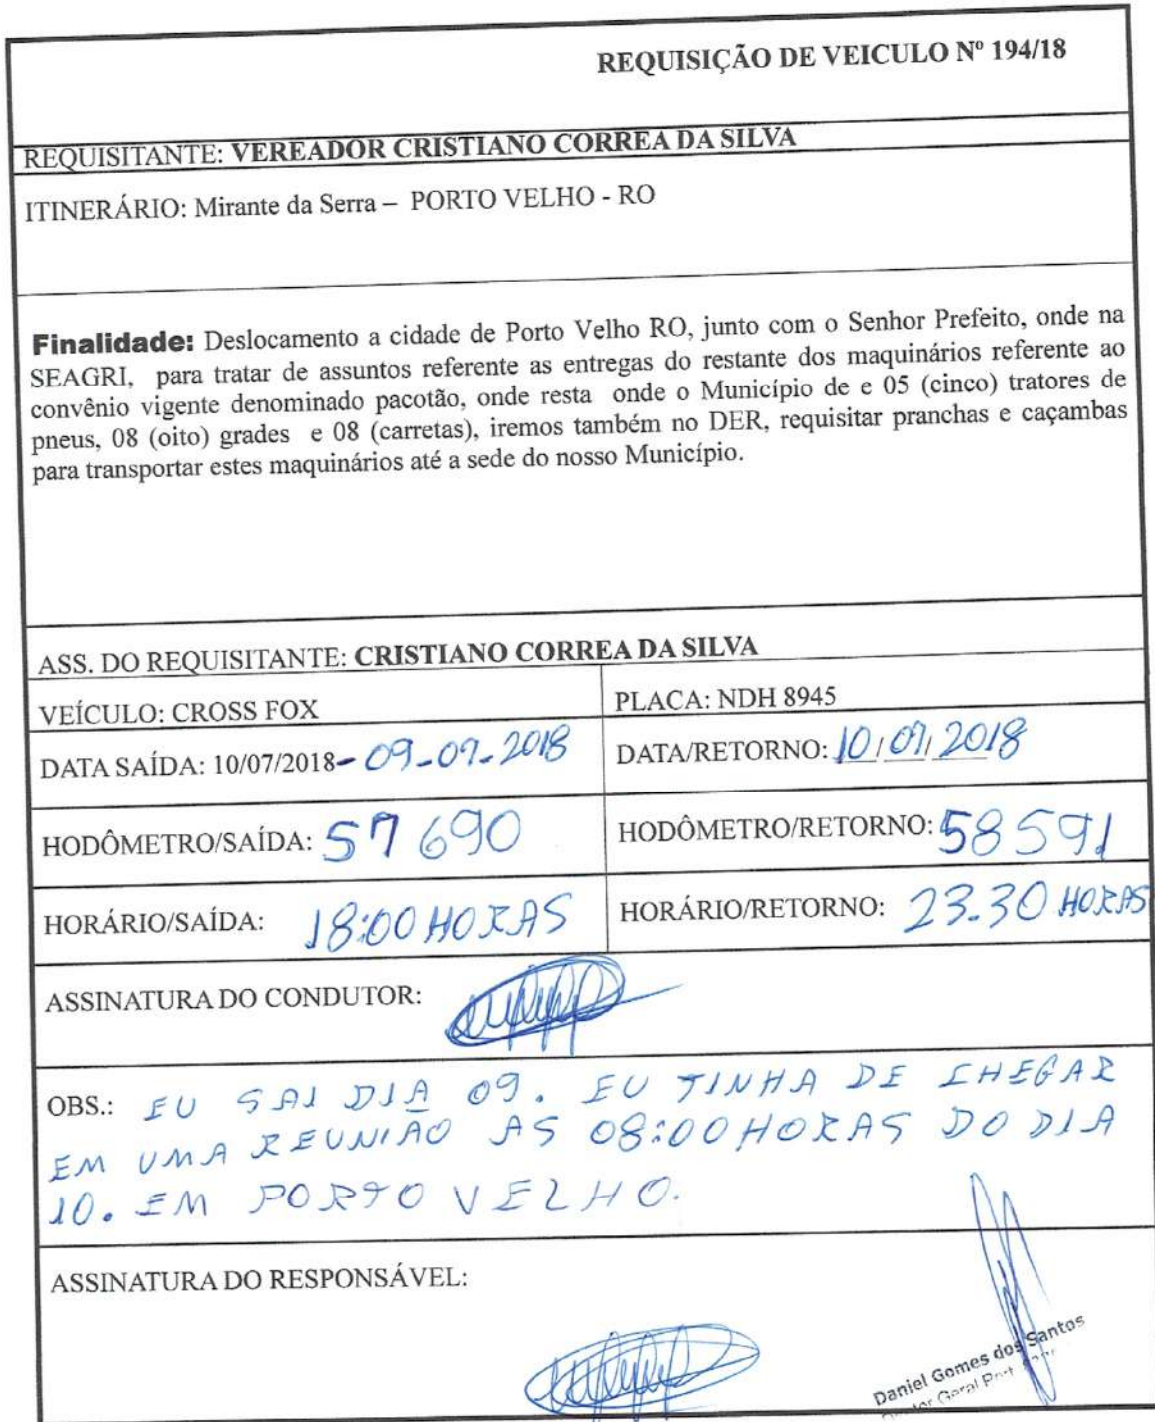 REQUISIÇÃO DE VEICULO Nº 194/18
REQUISITANTE: VEREADOR CRISTIANO CORREA DA SILVA
ITINERÁRIO: Mirante da Serra – PORTO VELHO - RO
Finalidade: Deslocamento a cidade de Porto Velho RO, junto com o Senhor Prefeito, onde na
SEAGRI, para tratar de assuntos referente as entregas do restante dos maquinários referente ao
convênio vigente denominado pacotão, onde resta onde o Município de e 05 (cinco) tratores de
pneus, 08 (oito) grades e 08 (carretas), iremos também no DER, requisitar pranchas e caçambas
para transportar estes maquinários até a sede do nosso Município.
ASS. DO REQUISITANTE: CRISTIANO CORREA DA SILVA
VEÍCULO: CROSS FOX
PLACA: NDH 8945
DATA SAÍDA: 10/07/2018 - 09-07-2018
DATA/RETORNO: 10/07/2018
HODÔMETRO/SAÍDA: 57690
HODÔMETRO/RETORNO: 58591
HORÁRIO/SAÍDA: 18:00 HORAS
HORÁRIO/RETORNO: 23.30 HORAS
ASSINATURA DO CONDUTOR:
OBS.: EU SAI DIA 09. EU TINHA DE CHEGAR
EM UMA REUNIÃO AS 08:00 HORAS DO DIA
10. EM PORTO VELHO.
ASSINATURA DO RESPONSÁVEL:
Daniel Gomes dos Santos
Geral Port.